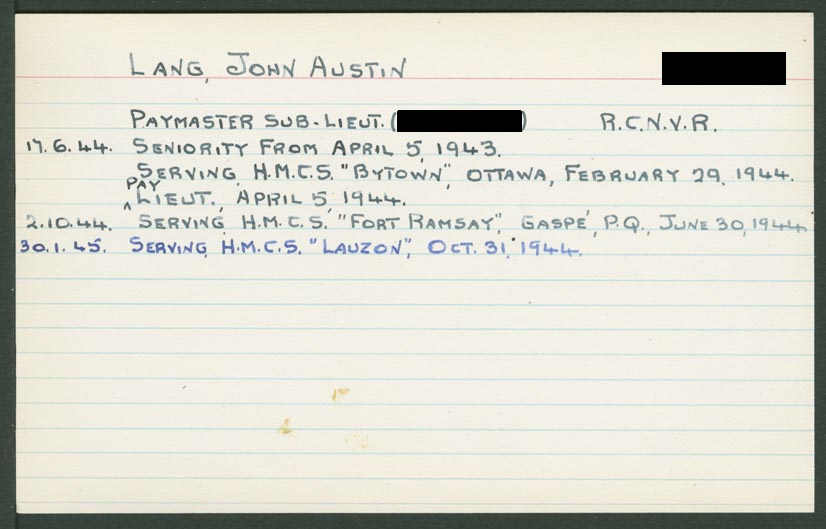 LANG, JOHN AUSTIN
PAYMASTER SUB-LIEUT. ( ) R.C.N.V.R.
17.6.44. SENIORITY FROM APRIL 5, 1943.
SERVING H.M.C.S. "BYTOWN", OTTAWA, FEBRUARY 29, 1944.
PAY
^LIEUT., APRIL 5, 1944.
2.10.44. SERVING H.M.C.S. "FORT RAMSAY", GASPÉ, P.Q., JUNE 30, 1944
30.1.45. SERVING H.M.C.S. "LAUZON", OCT. 31, 1944.